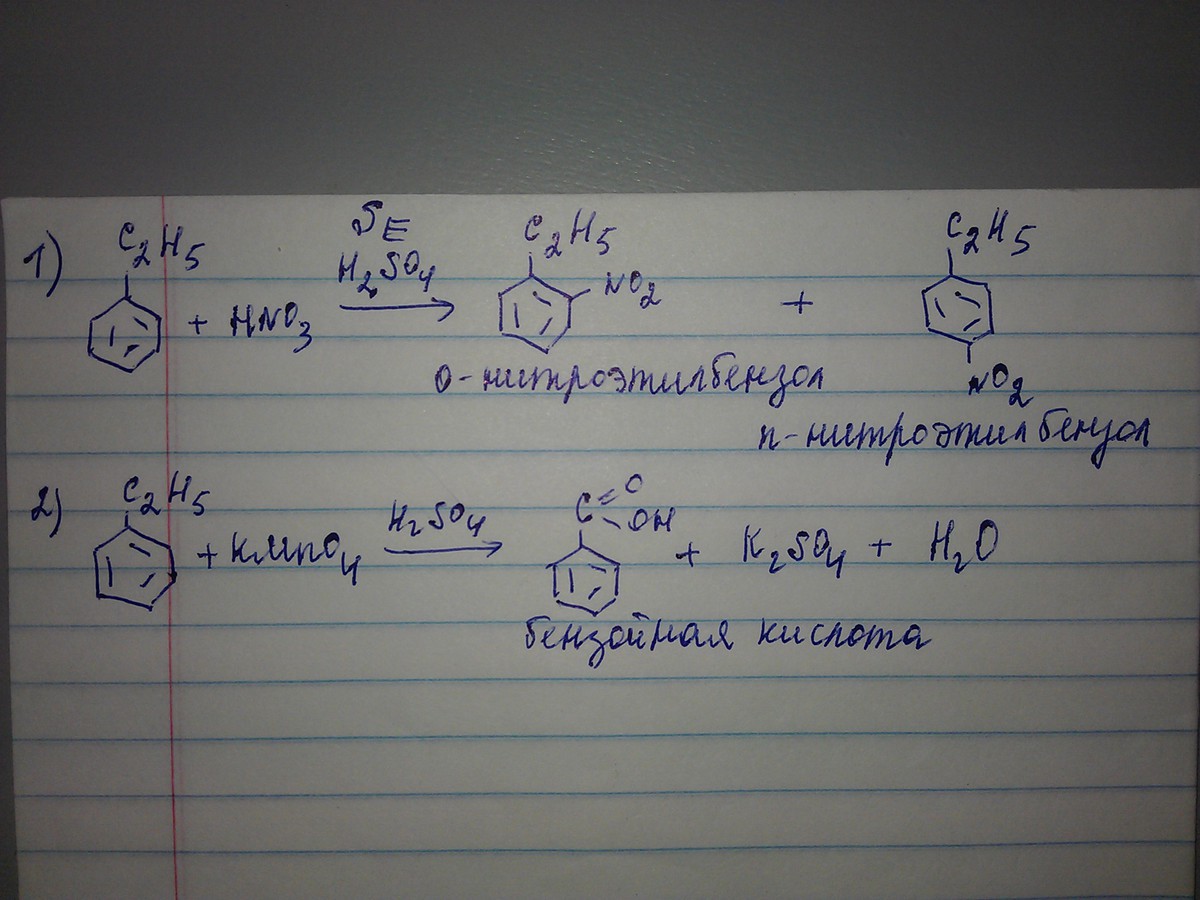 1) C2H5 + HNO3 SE H2SO4 → C2H5 NO2 + C2H5 NO2
о-нитроэтилбензол
п-нитроэтилбензол
2) C2H5 + KMnO4 H2SO4 → C=O -OH + K2SO4 + H2O
бензойная кислота